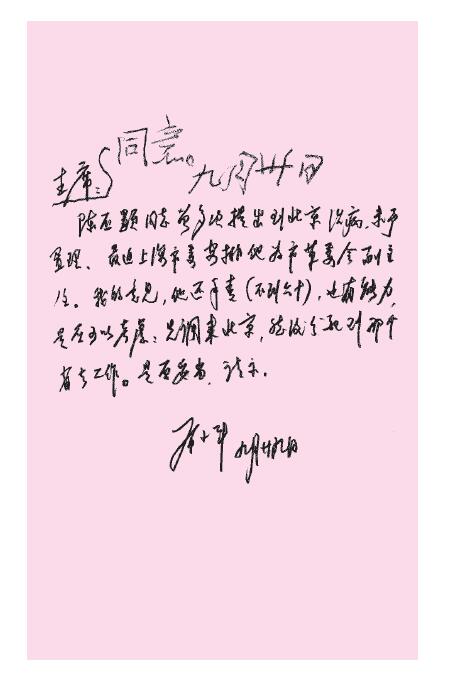 同意。
九月卅日
主席：
陈丕显同志曾多次提出到北京治病，未予
置理、最近上海市委安排他为市革委会副主
任。我的意见，他还年青（不到六十），也有能力，
是否可以考虑：先调来北京，然后分配到那个
省去工作。是否妥当，请示。
邓小平
九月廿九日